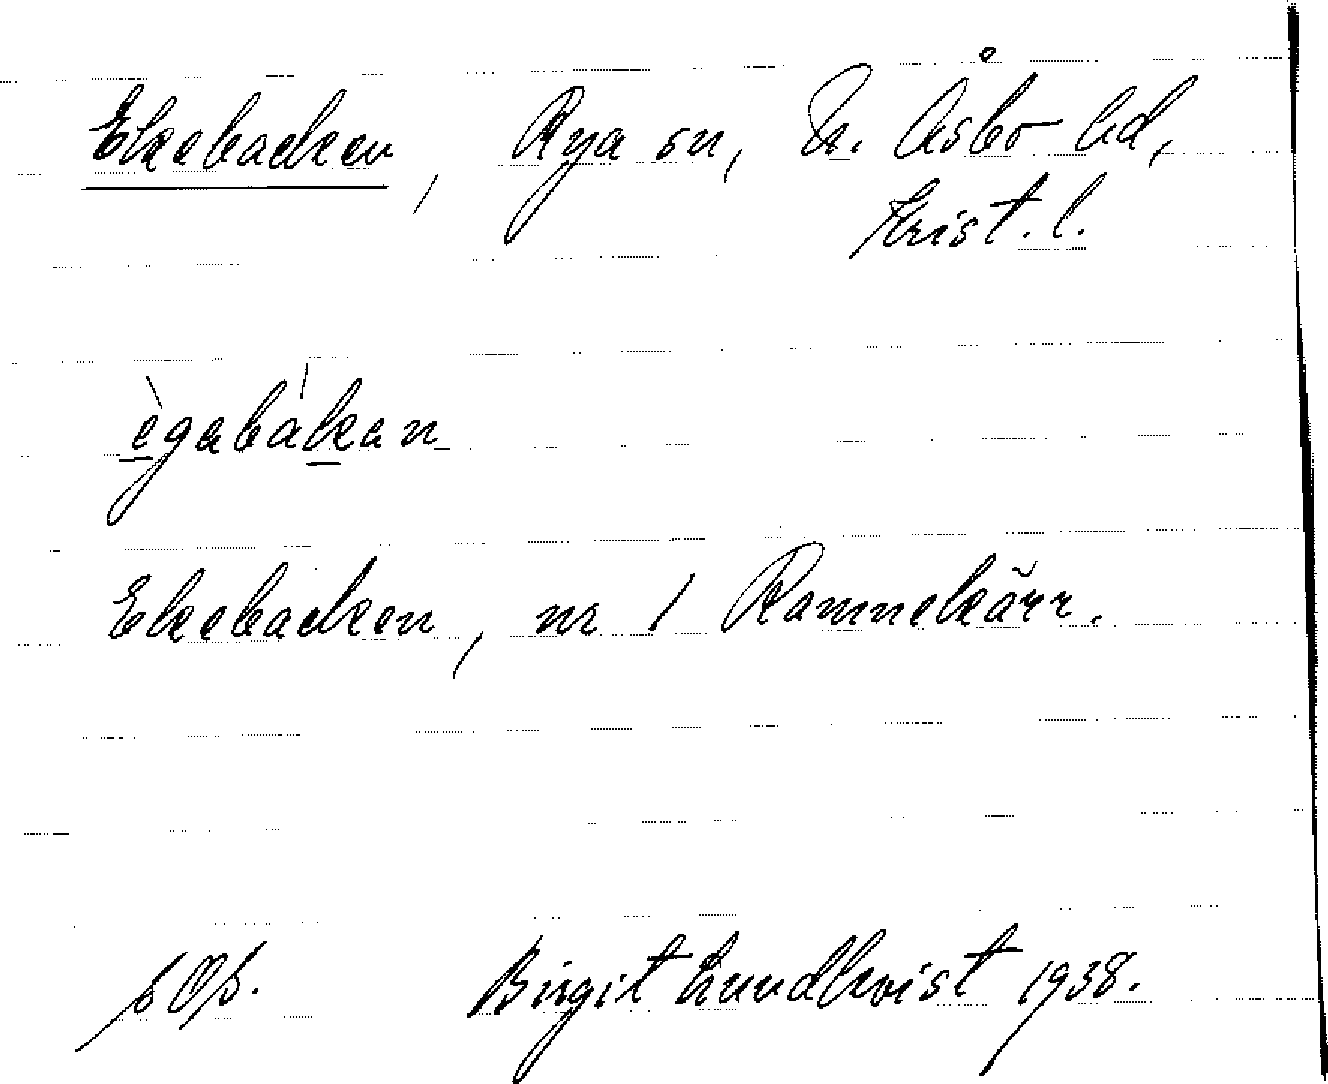 Ekebacken, Rya sn, N. Åsbo hd,
Krist. l.
ègabákan
Ekebacken, nr 1 Ramnekärr.
Birgit Lundkvist 1938.